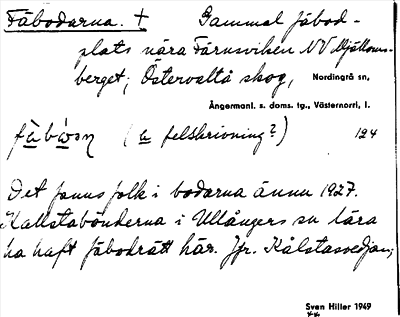 Fäbodarna. † Gammal fäbod-
plats nära Färnsviken NV Mjältoms-
berget; Östervalta skog, Nordingrå sn,
Ångermanl. s. doms. tg., Västernorrl, l.
( a felskrivning?) 124
Det fanns folk i bodarna ännu 1927.
Kallstabönderna i Ullångers sn lära
ha haft fäbodrätt här. Jfr. Kålstasvedjan;
Sven Hiller 1949
**